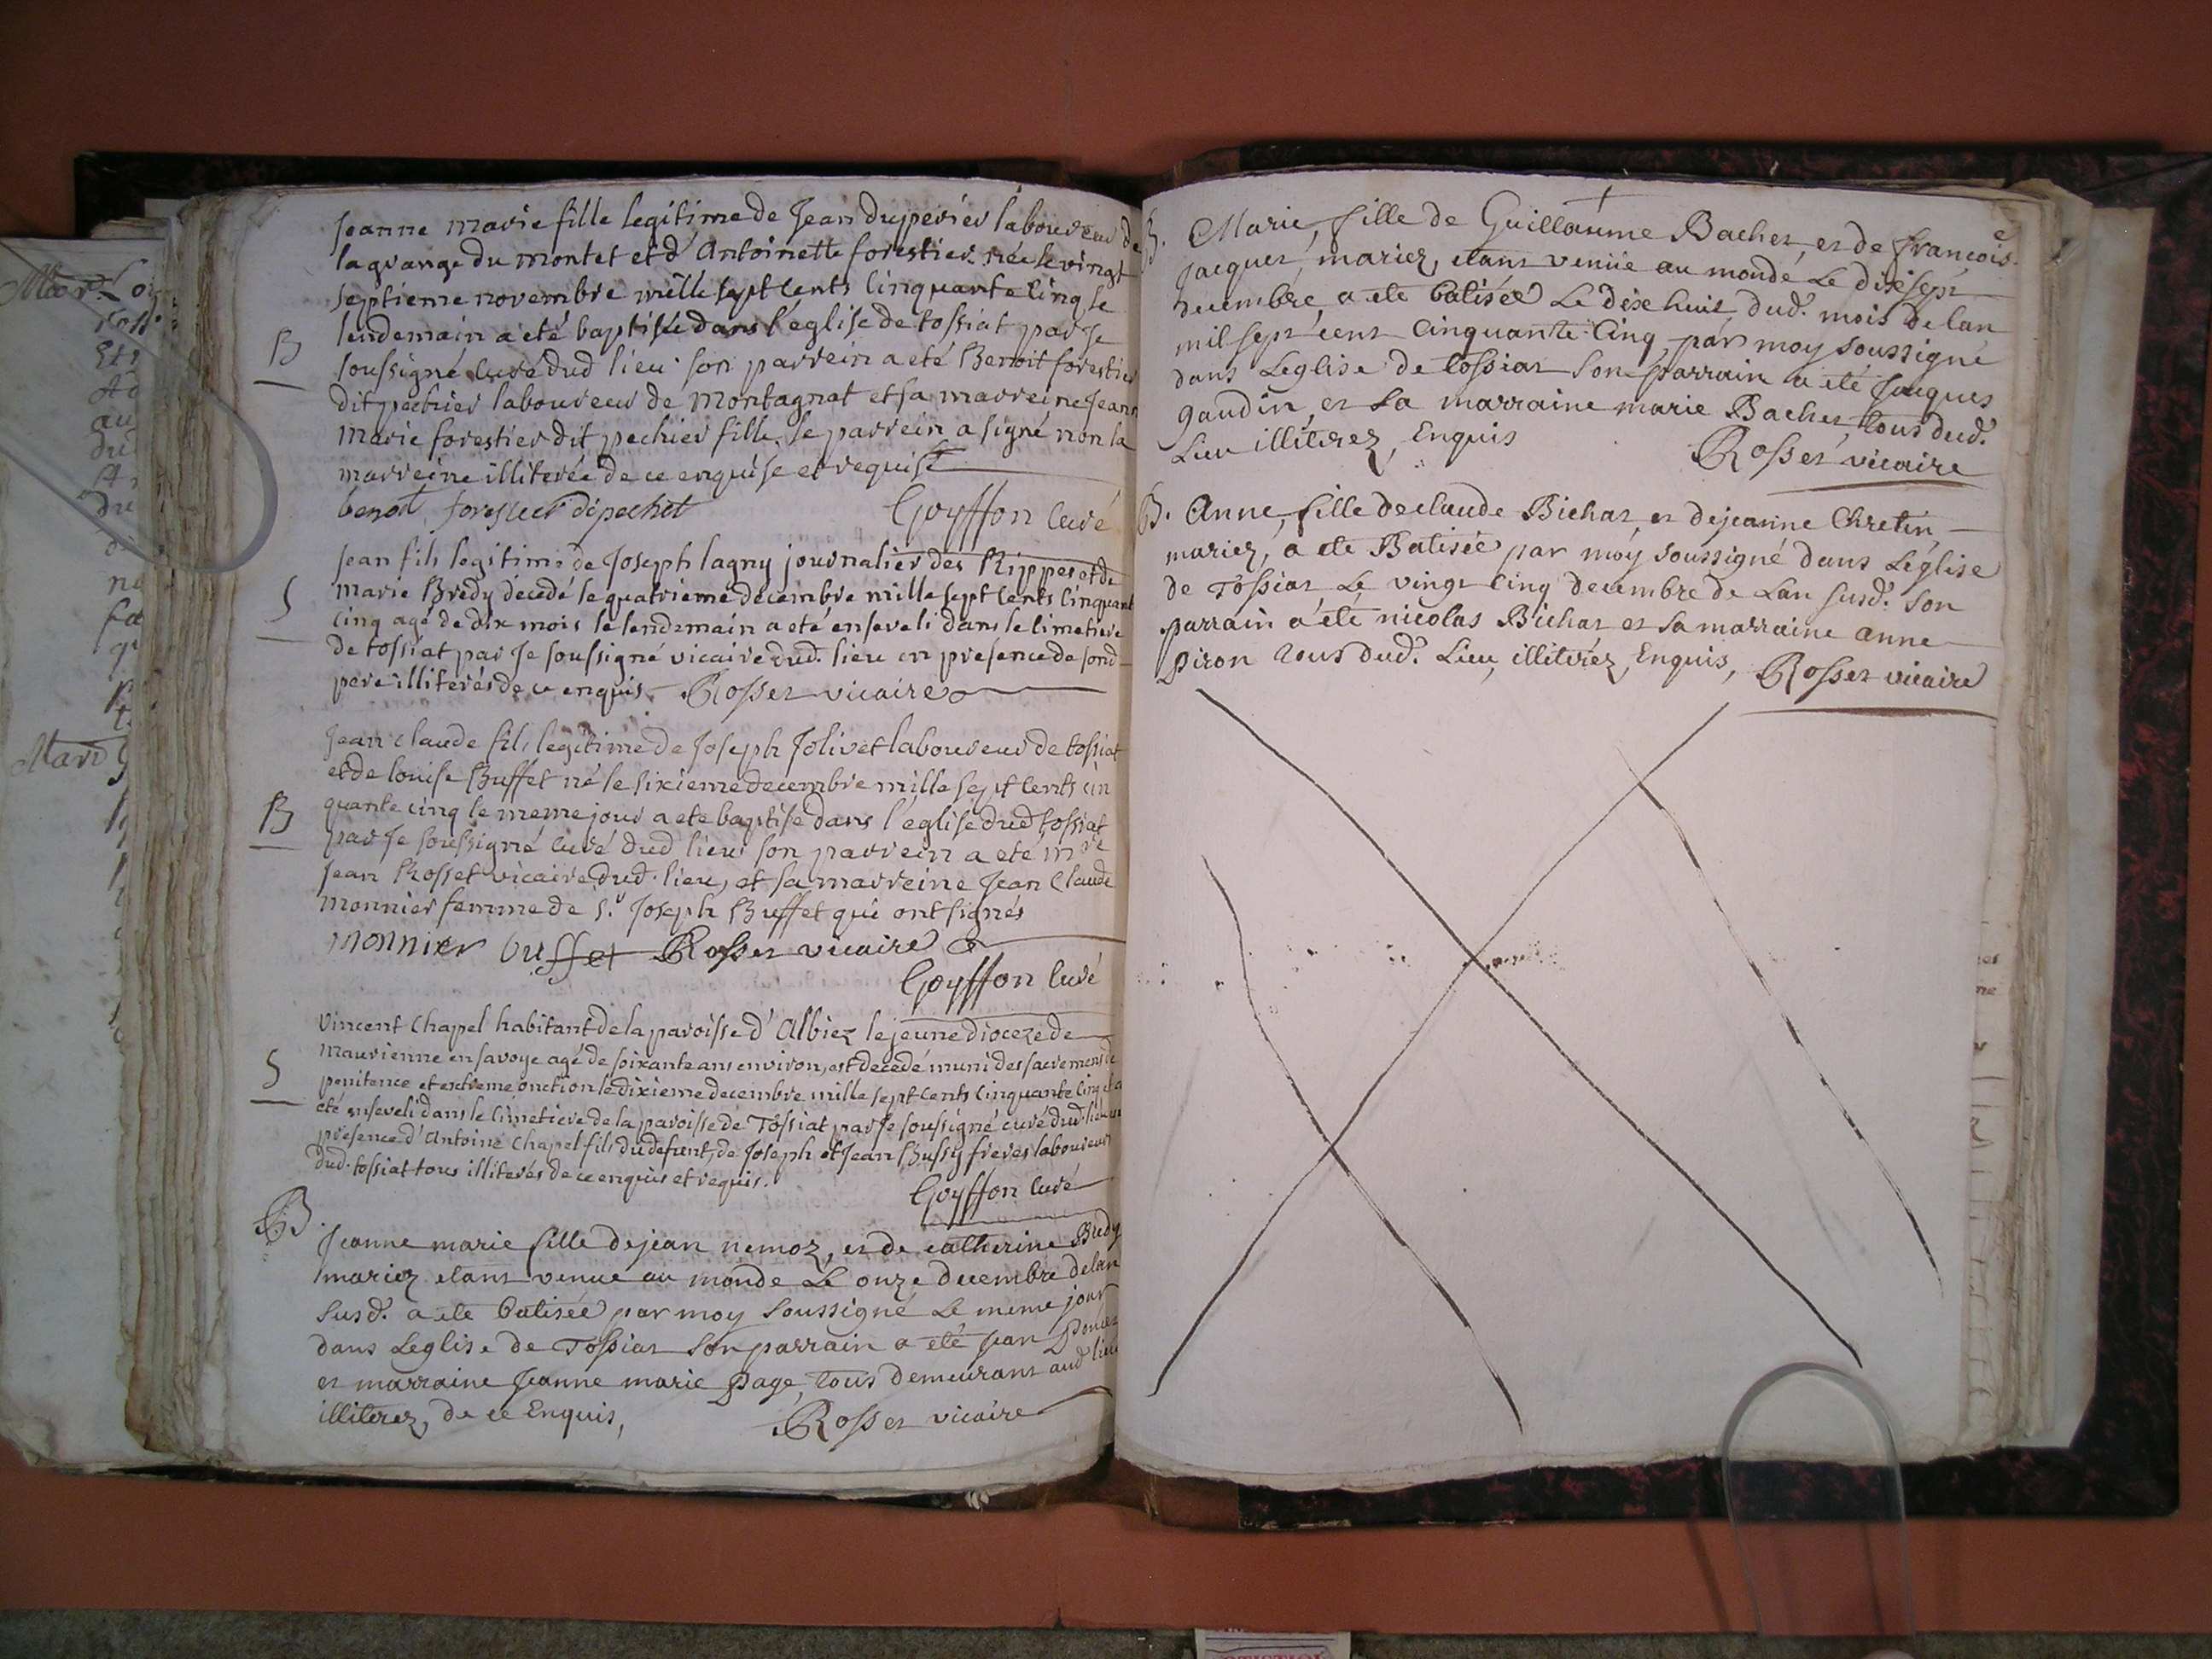 Jeanne marie fille legitime de Jean duperier laboureur de
la grange du montet et d'Antoinette forestier née le vingt
septieme novembre mille sept cents cinquante cinq le
lendemain a eté baptisée dans l'eglise de tossiat par Je
B
soussigné curé dud lieu son parrein a eté Benoit forestier
dit pechier laboureur de Montagnat et sa marreine Jeann
Marie forestier dit pechier fille. le parrein a signé non la
marreine illiterée de ce enquise et requise
benoit forestier dipechet Goyffon curé
Jean fils legitime de Joseph lagny journalier des Rippes et de
S
marie Bredy décedé le quatrieme decembre mille sept cents cinquant
cinq agé de dix mois le lendemain a eté enseveli dans le cimetiere
de tossiat par Je soussigné vicaire dud. lieu en presence de sond
pere illiterés de ce enquis. Rosset vicaire
Jean claude fils legitime de Joseph Jolivet laboureur de tossiat
et de louise Buffet né le sixieme decembre mille sept cents cin
B
quante cinq le meme jour a ete baptise dans l'eglise dud tossiat
par Je soussigné curé dud lieu son parrein a eté mre
Jean Rosset vicaire dud. lieu, et sa marreine Jean Claude
monnier femme de S.r Joseph Buffet qui ont signés
monnier buffet Rosset vicaire
Goyffon curé
Vincent Chapel habitant de la paroisse d'Albiez le jeune dioceze de
S
maurienne en savoye agé de soixante ans environ, est decedé muni des sacremens de
penitence et extreme onction le dixieme decembre mille sept cents cinquante cinq et a
eté enseveli dans le cimetiere de la paroisse de Tossiat par Je soussigné curé dud. lieu en
presence d'Antoine Chapel fils du defunt, de Joseph et Jean Bussy freres laboureurs
dud. tossiat tous illiterés de ce enquis et requis.
Goyffon curé
B
Jeanne marie fille de jean nemoz, et de catherine Bredy
mariez etant venue au monde Le onze decembre de lan
susd. a ete batisée par moy soussigné Le meme jour
dans Leglise de Tossiat son parrain a eté jean
et marraine Jeanne marie page, tous demeurant aud lieu
illiterez, de ce Enquis,
Rosset vicaire
B. Marie, fille de Guillaume Bachet, et de francoise
jacquet, mariez, etant venüe au monde Le dixsept
decembre, a ete batisée Le dixe huit dud. mois de lan
mil sept cent cinquante cinq par moy soussigné
dans Leglise de tossiat son parrain a eté Jacques
gaudin, et sa marraine marie Bachet tous dud.
Lieu illiterez, Enquis
Rosset vicaire
B. Anne, fille de claude Bichat, et de jeanne Chretin,
mariez, a ete Batisée par moy soussigné dans Léglise
de Tossiat Le vingt cinq decembre de Lan susd. son
parrain a eté nicolas Bichat et sa marraine anne
piron tous dud. Lieu, illiterez, Enquis, Rosset vicaire